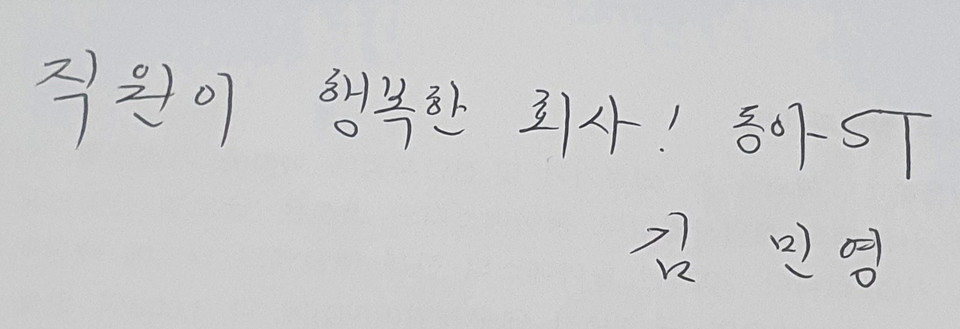 직원이 행복한 회사! 동아ST
김 민영